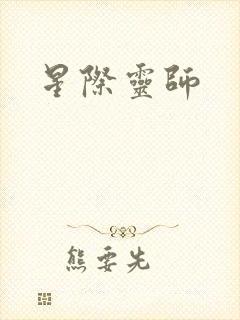 星際靈師
熊要先